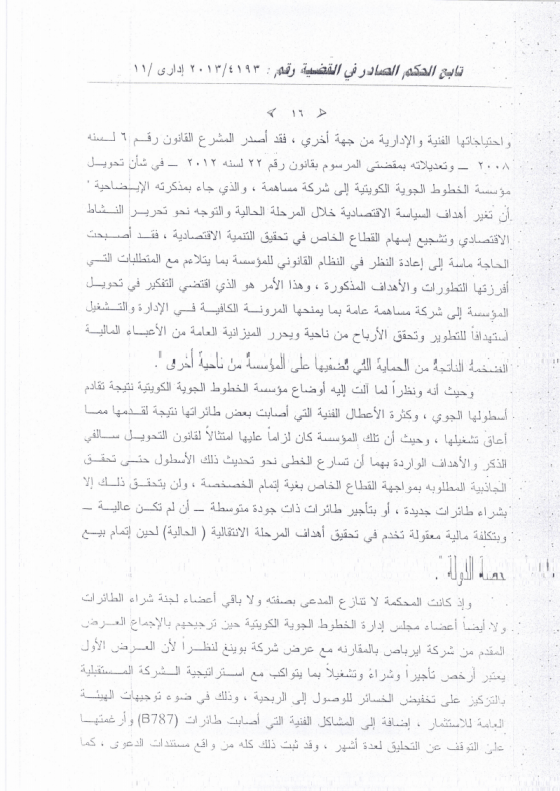 تابع الحكم الصادر في القضية رقم : ٢٠١٣/٤١٩٣ إدارى /١١
١٦
واحتياجاتها الفنية والإدارية من جهة أخري ، فقد أصدر المشرع القانون رقم ٦ لسنه
٢٠٠٨ ـ وتعديلاته بمقتضى المرسوم بقانون رقم ٢٢ لسنه ٢٠١٢ ـ في شأن تحويل
مؤسسة الخطوط الجوية الكويتية إلى شركة مساهمة ، والذي جاء بمذكرته الإيضاحية "
أن تغير أهداف السياسة الاقتصادية خلال المرحلة الحالية والتوجه نحو تحرير النشاط
الاقتصادي وتشجيع إسهام القطاع الخاص في تحقيق التنمية الاقتصادية ، فقد أصبحت
الحاجة ماسة إلى إعادة النظر في النظام القانوني للمؤسسة بما يتلاءم مع المتطلبات التي
أفرزتها التطورات والأهداف المذكورة ، وهذا الأمر هو الذي اقتضي التفكير في تحويل
المؤسسة إلى شركة مساهمة عامة بما يمنحها المرونة الكافية في الإدارة والتشغيل
استهدافاً للتطوير وتحقق الأرباح من ناحية ويحرر الميزانية العامة من الأعباء المالية
الضخمة الناتجة من الحماية التي تضفيها على المؤسسة من ناحية أخرى ".
وحيث أنه ونظراً لما آلت إليه أوضاع مؤسسة الخطوط الجوية الكويتية نتيجة تقادم
أسطولها الجوي ، وكثرة الأعطال الفنية التي أصابت بعض طائراتها نتيجة لقدمها مما
أعاق تشغيلها ، وحيث أن تلك المؤسسة كان لزاماً عليها امتثالاً لقانون التحويل سالفي
الذكر والأهداف الواردة بهما أن تسارع الخطى نحو تحديث ذلك الأسطول حتى تحقق
الجاذبية المطلوبه بمواجهة القطاع الخاص بغية إتمام الخصخصة ، ولن يتحقق ذلك إلا
بشراء طائرات جديدة ، أو بتأجير طائرات ذات جودة متوسطة ـ أن لم تكن عالية ـ
وبتكلفة مالية معقولة تخدم في تحقيق أهداف المرحلة الانتقالية ( الحالية) لحين إتمام بيع
حصة الدولة ".
وإذ كانت المحكمة لا تنازع المدعى بصفته ولا باقي أعضاء لجنة شراء الطائرات
ولا أيضاً أعضاء مجلس إدارة الخطوط الجوية الكويتية حين ترجيحهم بالإجماع العرض
المقدم من شركة ايرباص بالمقارنه مع عرض شركة بوينغ لنظراً لأن العرض الأول
يعتبر أرخص تأجيراً وشراءً وتشغيلاً بما يتواكب مع استراتيجية الشركة المستقبلية
بالتركيز على تخفيض الخسائر للوصول إلى الربحية ، وذلك في ضوء توجيهات الهيئة
العامة للاستثمار ، إضافة إلى المشاكل الفنية التي أصابت طائرات (B787) وأرغمتها
على التوقف عن التحليق لعدة أشهر ، وقد ثبت ذلك كله من واقع مستندات الدعوى ، كما